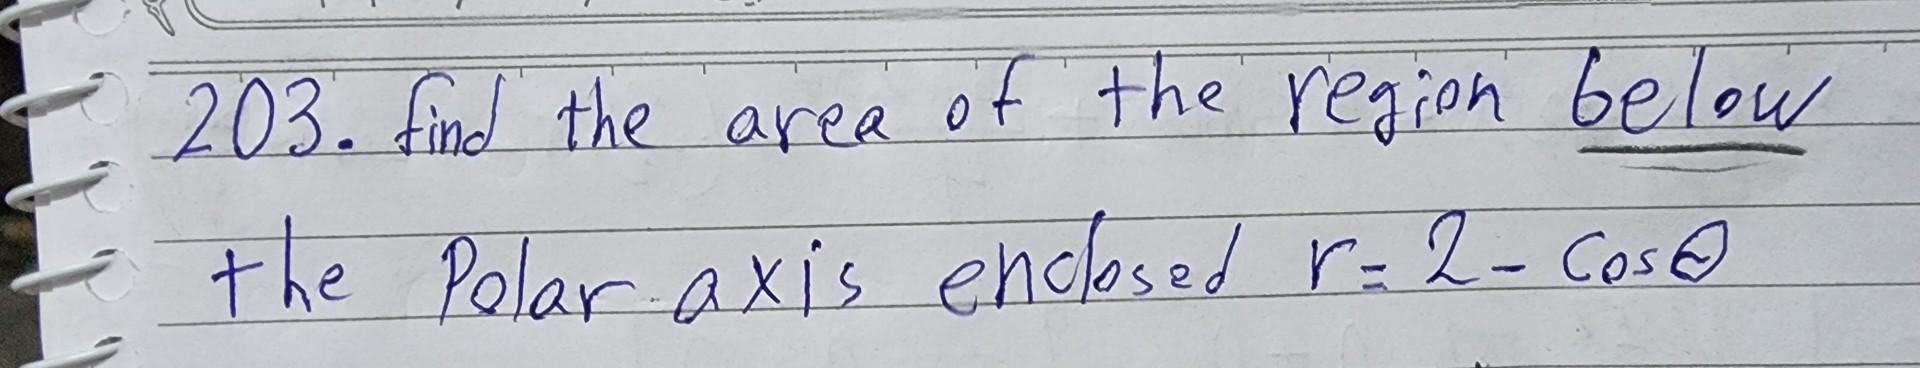 203. find the area of the region below
the Polar axis enclosed r = 2 - cosθ